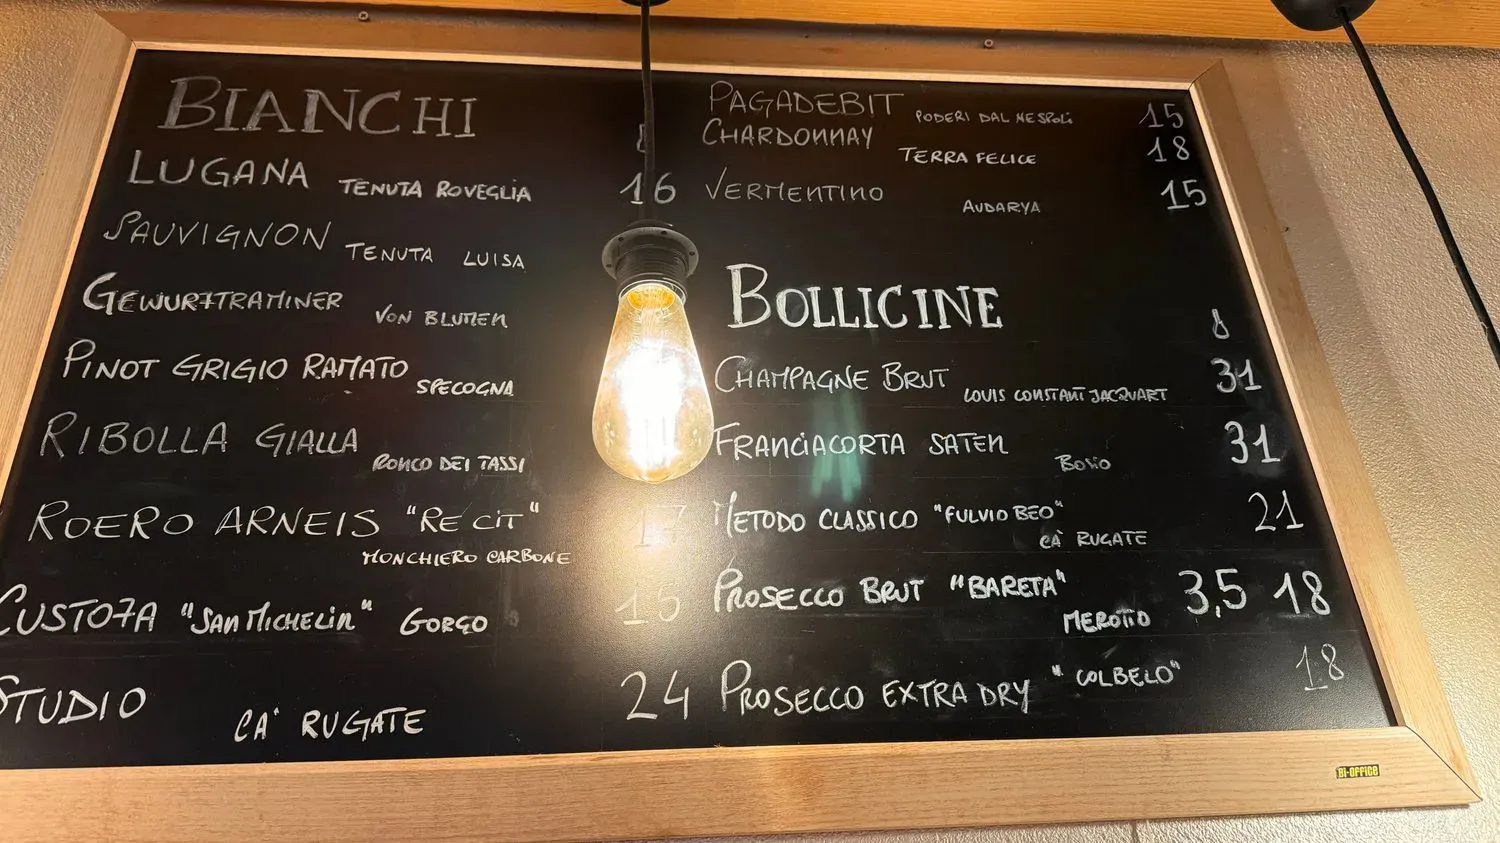 BIANCHI
LUGANA TENUTA ROVEGLIA 16
SAUVIGNON TENUTA LUISA
GEWURZTRAMINER VON BLUMEN
PINOT GRIGIO RAMATO SPECOGNA
RIBOLLA GIALLA RONCO DEI TASSI
ROERO ARNEIS "RE CIT" 17
MONCHIERO CARBONE
CUSTOZA "SAN MICHELIN" GORGO 15
STUDIO CA' RUGATE 24
PAGADEBIT PODERI DAL NESPOLI 15
CHARDONNAY TERRA FELICE 18
VERMENTINO AUDARYA 15
BOLLICINE
CHAMPAGNE BRUT LOUIS CONSTANT JACQUART 31
FRANCIACORTA SATEN BOSIO 31
METODO CLASSICO "FULVIO BEO" 21
CA' RUGATE
PROSECCO BRUT "BARETA" 3,5 18
MEROTTO
PROSECCO EXTRA DRY "COLBELO" 18
Bi-OFFICE